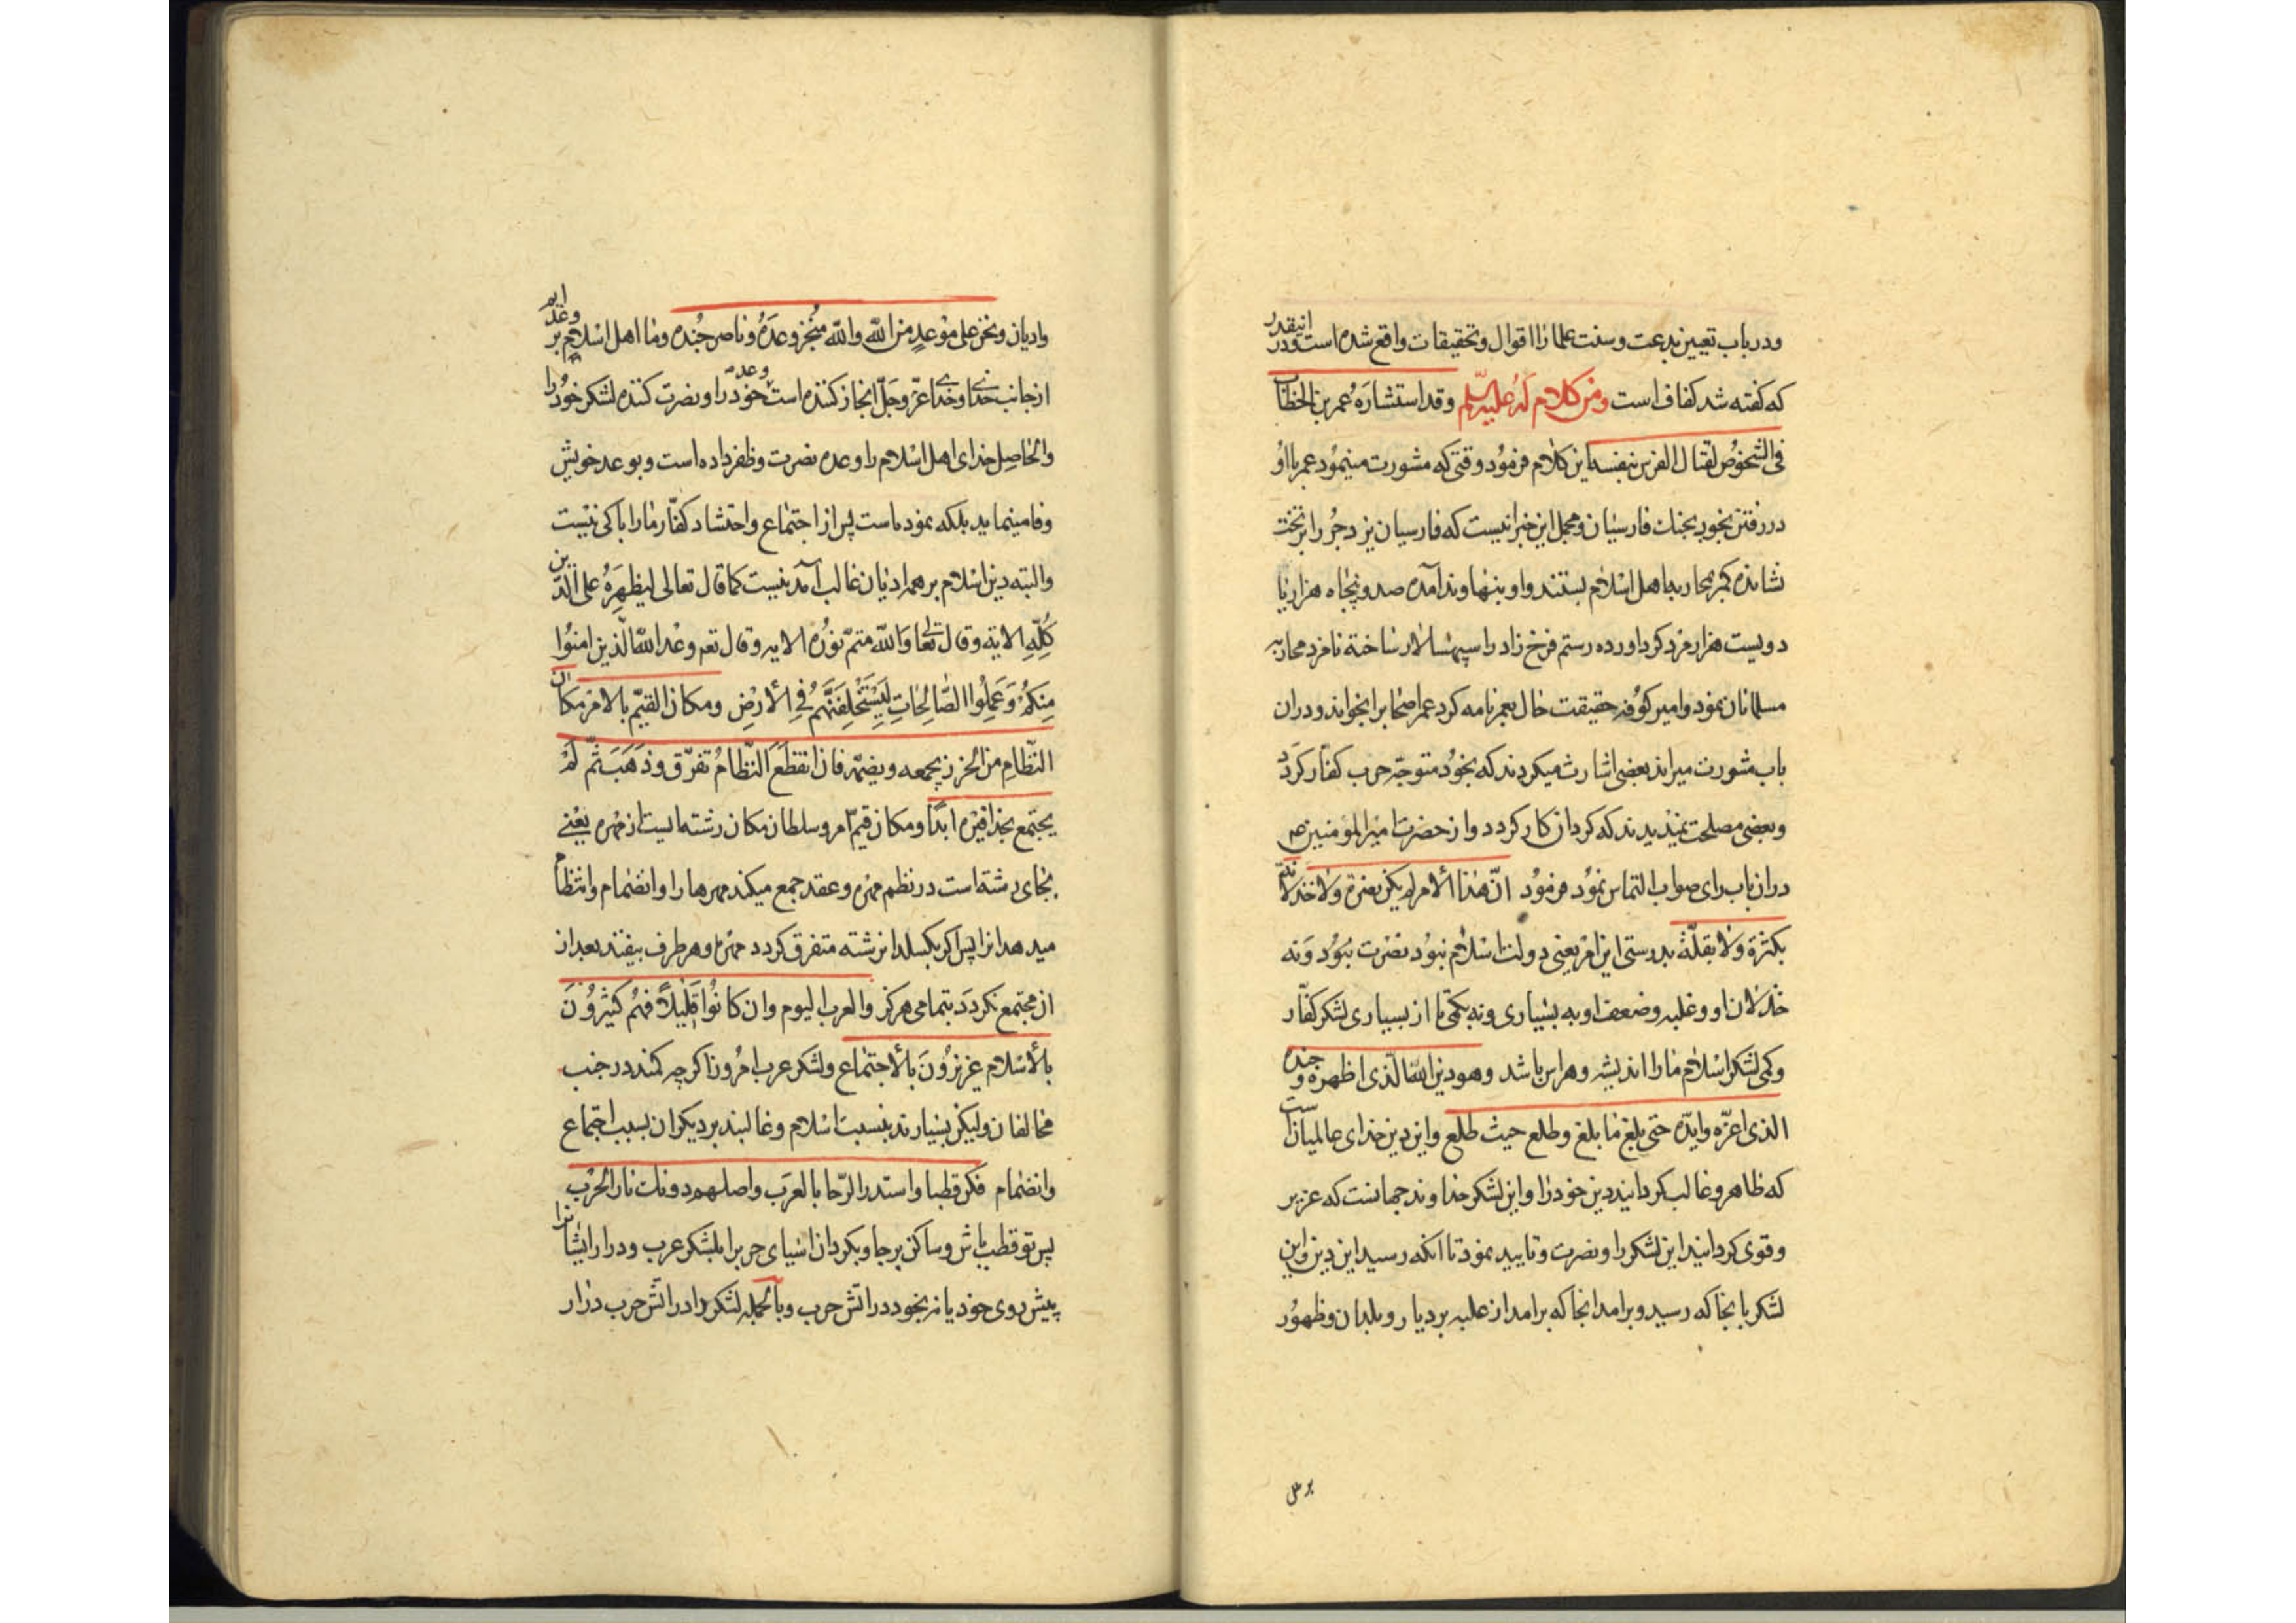 ودر باب تعیین بدعت وسنت علما را اقوال وتحقیقات واقع شده است ودر انیقدر
که کفته شد کفاف است ومن کلام له علیه السلم وقد استشاره عمر بن الخطاب
فی الشخوص لقتال الفرس بنفسه این کلام فرمود وقتی که مشورت مینمود عمر با او
در رفتن بخود بجنك فارسیان ومجمل این خبر انیست که فارسیان یزدجر را بر تخت
نشانده کمر بمحاربه اهل اسلام بستند واو بنهاوند آمده صد وپنجاه هزار یا
دویست هزار مرد کرد اورده رستم فرخ زاد را سپهسالار ساخته نامزد محاربه
مسلمانان نمود وامیر کوفه حقیقت حال بعمر نامه کرد عمر اصحاب را بخواند ودران
باب مشورت میراند بعضی اشارت میکردند که بخود متوجه حرب کفار کردد
وبعضی مصلحت نمیدیدند که کرد ان کار کردد واز حضرت امیر المومنین عم
دران باب رای صواب التماس نمود فرمود انّ هذا الامر لم یکن نصره ولا خذلانه
بکثرة ولا بقلّة بدرستی این امر یعنی دولت اسلام نبود نصرت نبود ونه
خذلان او وغلبه وضعف او به بسیاری ونه بکمی تا از بسیاری لشکر کفار
وکمی لشکر اسلام مارا اندیشه وهراس باشد وهو دین الله الذی اظهره وجنده
الذی اعزّه وایدّه حتی بلغ ما بلغ وطلع حیث طلع واین دین خدای عالمیانست
که ظاهر وغالب کردانید دین خود را واین لشکر خداوند جهانست که عزیز
وقوی کردانید این لشکر را ونصرت وتایید نمود تا آنکه رسید این دین واین
لشکر بانجا که رسید وبرامد انجا که برامد از غلبه بر دیار وبلدان وظهور
بر ملل
وادیان ونحن علی موعد من الله والله منجز وعده وناصر جنده وما اهل اسلام بر وعده ایم
از جانب خدای وخدای عزّ وجلّ انجاز کننده است وعده خود را ونصرت کننده لشکر خود را
والحاصل خدای اهل اسلام را وعده نصرت وظفر داده است وبوعد خویش
وفا مینماید بلکه نموده است پس از اجتماع واحتشاد کفّار مارا باکی نیست
والبته دین اسلام بر همه ادیان غالب آمدنیست کما قال تعالی لیظهره علی الدّین
کلّه الایة وقال تعالی والله متمّ نوره الایه وقال تعم وعد الله الّذین امنوا
منکم وعملوا الصّالحات لیستخلفنّهم فی الأرض ومکان القیّم بالامر مکان
النّظام من الخرز یجمعه ویضمّه فان انقطع النّظام تفرّق وذهب ثمّ لم
یجتمع بحذافیره ابدًا ومکان قیّم امر وسلطان مکان رشته ایست از مهره یعنی
بجای رشته است در نظم مهره وعقد جمع میکند مهرها را وانضمام وانتظام
میدهد انرا پس اکر بکسلد انرشته متفرق کردد مهرها وهر طرف بیفتد بعد از
ان مجتمع نکردد بتمامی هرکز والعرب الیوم وان کانوا قلیلاً فهم کثیرون
بالأسلام عزیزون بالأجتماع ولشکر عرب امروز اکرچه کمند در جنب
مخالفان ولیکن بسیارند بنسبت اسلام وغالبند بر دیکران بسبب اجتماع
وانضمام فکن قطبا واستدر الرّحا بالعرب واصلهم دونك نار الحرب
پس تو قطب باش وساکن برجا وبکردان اسیای حرب را بلشکر عرب ودرار ایشانرا
پیش روی خود یا نه بخود در اتش حرب وبالجمله لشکر را در اتش حرب درار